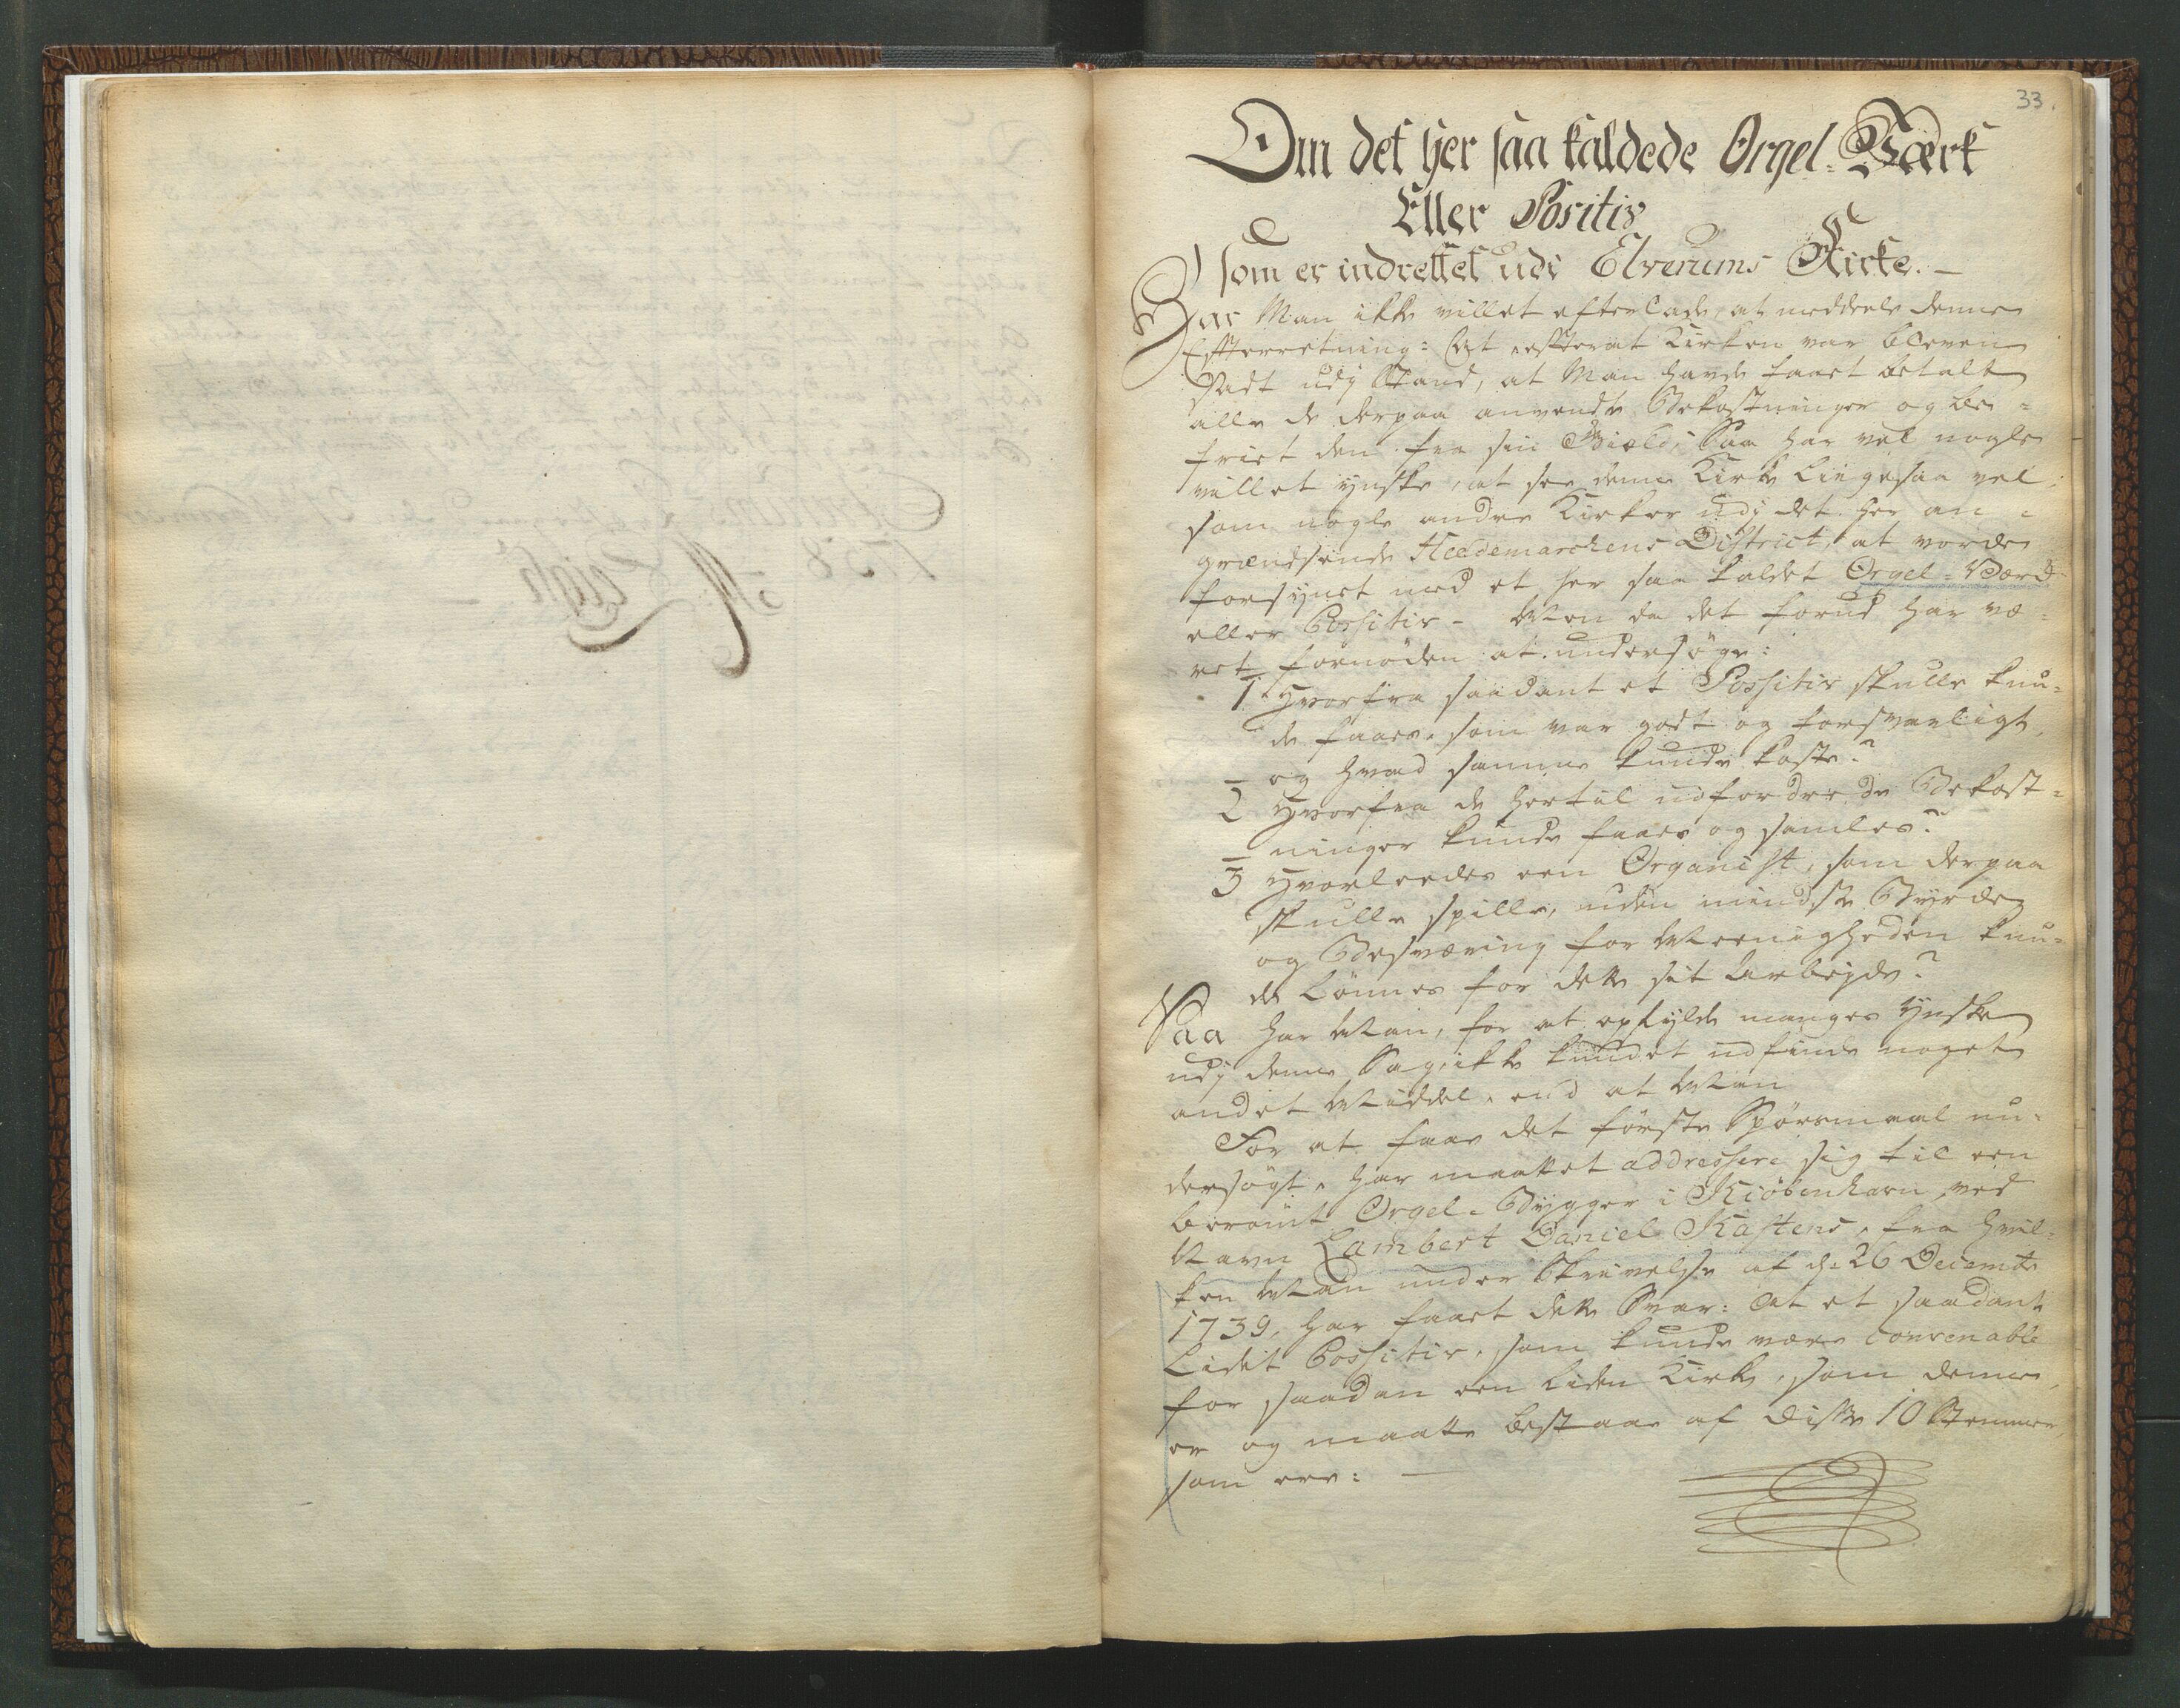 33.
Om det her saa kaldede Orgel-Værk
Eller Positiv
som er indrettet udi Elverums Kirke. -
Har Man ikke villet efterlade, at meddeele denne
Efterretning: At eftterat Kirken var bleven
sadt udj Stand, at Man havde faaet betalt
alle de derpaa anvendte Bekostninger og be-
friet den fra sin Giæld; Saa har vel nogle
villet ynske, at see denne Kirke liigesaa vel
som nogle andre Kirker udj det her an-
grændsende Heedemarchens District, at vorde
forsynet med et her saa kaldet Orgel-Værk
eller Possitiv - Men da det forud har væ-
ret fornöden at undersöge:
1. Hvorfra saadant et Possitiv skulle kun-
de faaes, som var godt og forsvarligt,
og hvad samme kunde koste?
2 Hvorfra de hertil udfordrede Bekost-
ninger kunde faaes og samles?
3 Hvorleedes een Organist, som derpaa
skulle spille, uden mindste Byrde
og Besværing for Meenigheden kun-
de lönnes for dette sit Arbejde?
Saa har Man, for at opfylde manges ynske
udj denne Sag, ikke kundet udfinde noget
andet Middel, end at Man
For at faae det förste Spörsmaal un-
dersögt, har maattet addressere sig til een
berömt Orgel-Bygger i Kiöbenhavn, ved
Navn Lambert Daniel Kastens, fra hvil-
ken Man under Skrivelse af d. 26 Decembr
1739, har faaet dette Svar: At et saadant
lidet Possitiv, som kunde være convenable
for saadan een liden Kirke, som denne
er og maatte bestaae af disse 10 Stemmer,
som ere: -
1758